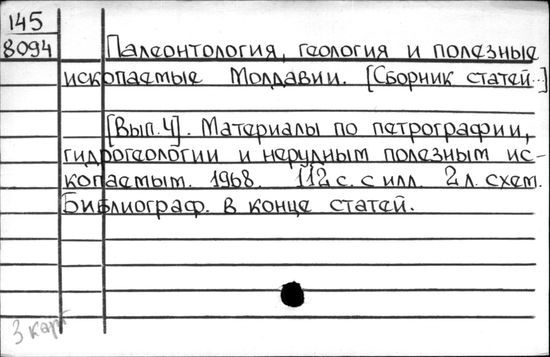 145
8094
Палеонтология, геология и полезные
ископаемые Молдавии. [Сборник статей..]
[Вып.4]. Материалы по петрографии,
гидрогеологии и нерудным полезным ис-
копаемым. 1968. 112 с. с илл. 2 л. схем.
Библиограф. в конце статей.
3 карт